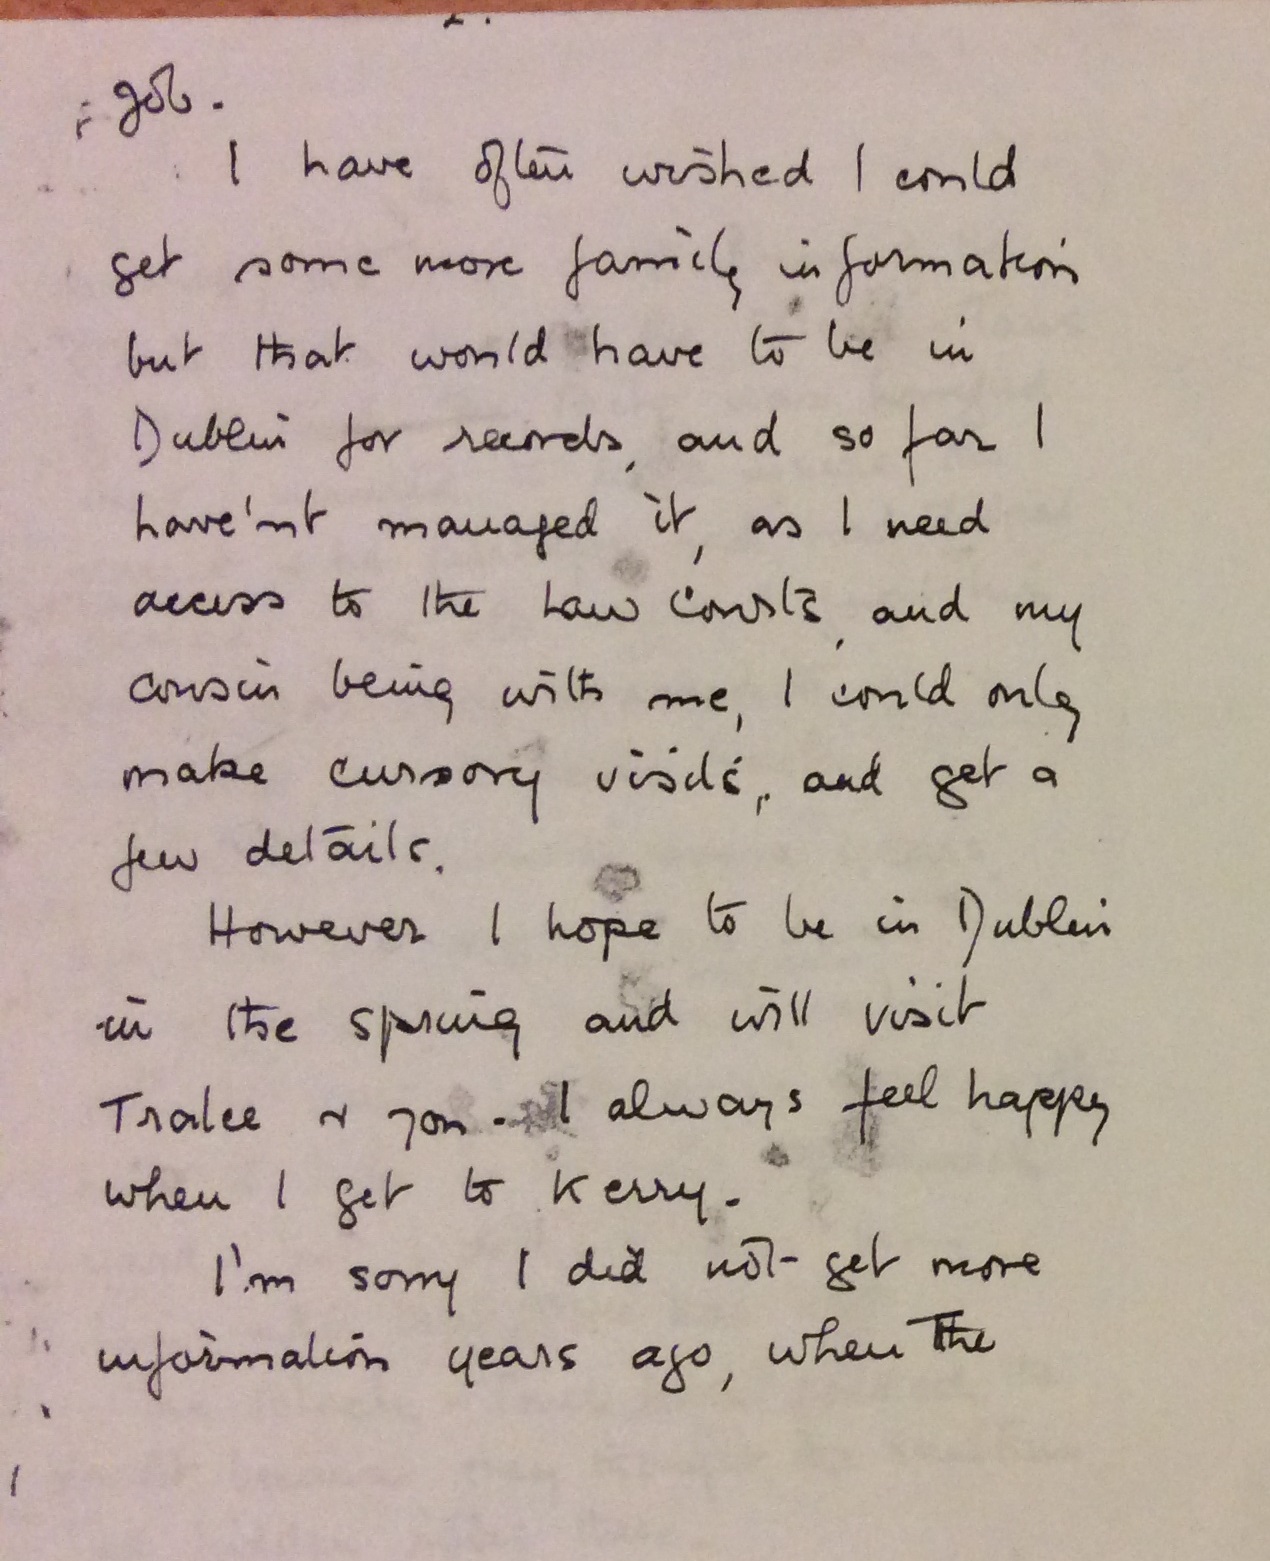 job.
I have often wished I could
get some more family information
but that would have to be in
Dublin for records, and so far I
have'nt managed it, as I need
access to the Law Courts, and my
cousin being with me, I could only
make cursory visits, and get a
few details.
However I hope to be in Dublin
in the spring and will visit
Tralee & you. I always feel happy
when I get to Kerry.
I'm sorry I did not get more
information years ago, when the